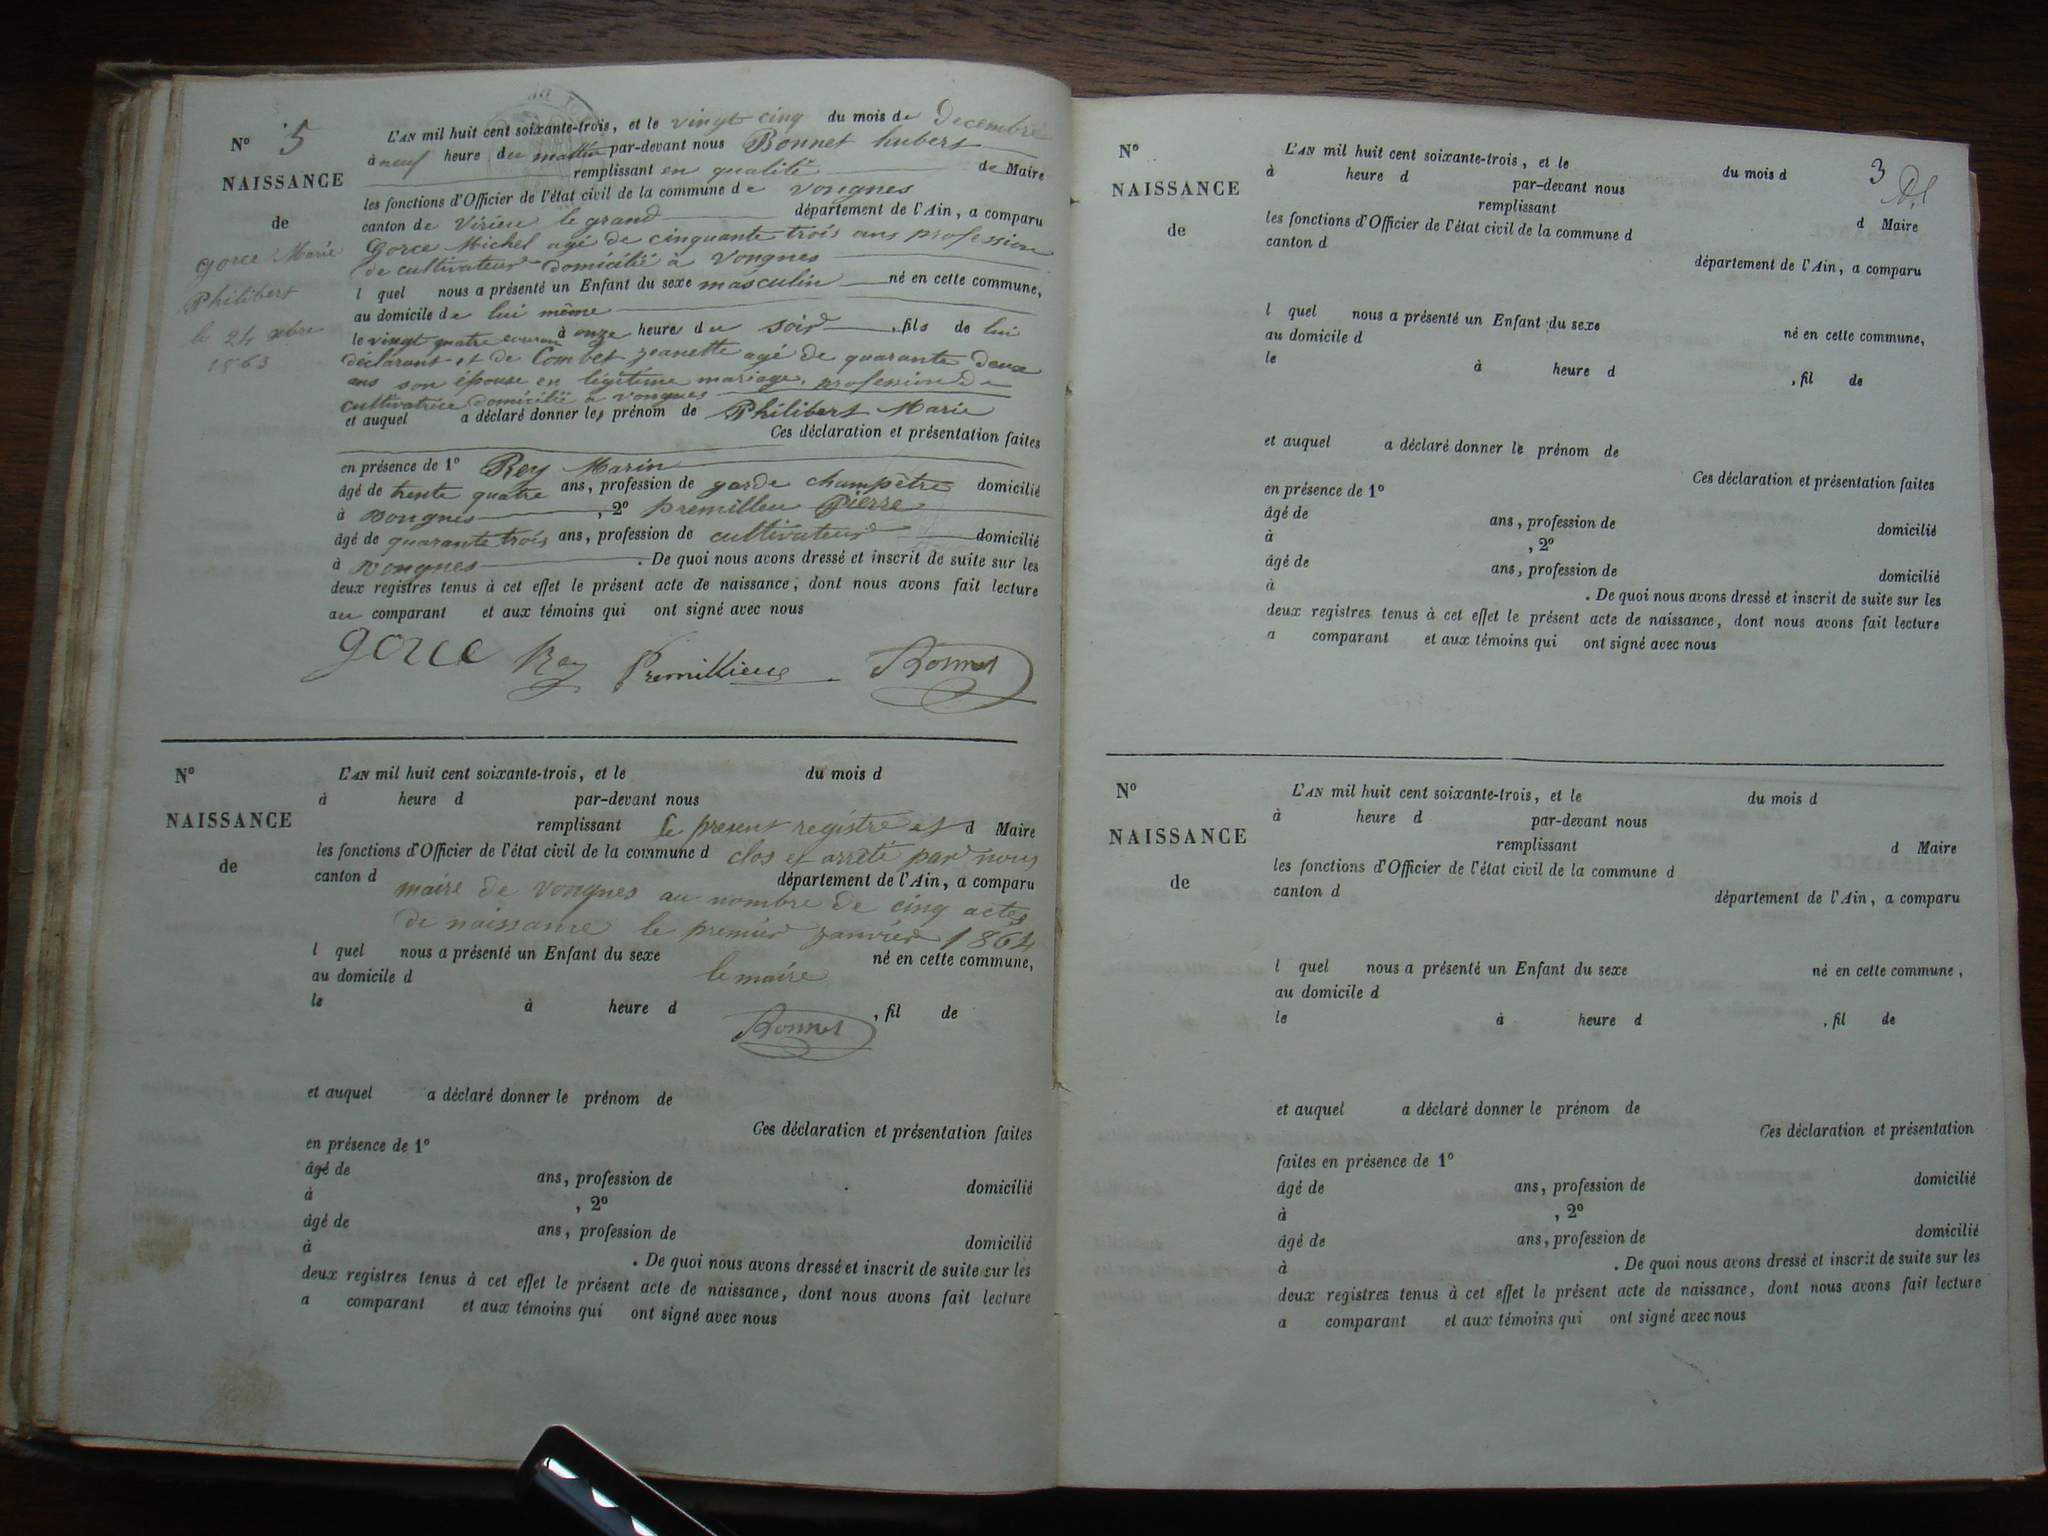 N° 5
NAISSANCE
de
gorce Marie
Philibert
le 24 xbre
1863
L'AN mil huit cent soixante-trois, et le vingt cinq du mois de Decembre
à neuf heure du matin par-devant nous Bonnet hubert
remplissant en qualité de Maire
les fonctions d'Officier de l'état civil de la commune de vongnes
canton de virieu le grand département de l'Ain, a comparu
Gorce Michel agé de cinquante trois ans profession
de cultivateur domicilié à vongnes
l quel nous a présenté un Enfant du sexe masculin né en cette commune,
au domicile de lui même
le vingt quatre courant à onze heure du soir, fils de lui
déclarant et de Combet jeanette agé de quarante deux
ans son épouse en légitime mariage, profession de
cultivatrice domicilié à vongnes
et auquel a déclaré donner les prénom de Philibert Marie
Ces déclaration et présentation faites
en présence de 1° Rey Marin
âgé de trente quatre ans, profession de garde champêtre domicilié
à vongnes, 2° premilleu Pierre
âgé de quarante trois ans, profession de cultivateur domicilié
à vongnes. De quoi nous avons dressé et inscrit de suite sur les
deux registres tenus à cet effet le présent acte de naissance, dont nous avons fait lecture
au comparant et aux témoins qui ont signé avec nous
gorce Rey Premillieu Bonnet
N°
NAISSANCE
de
L'AN mil huit cent soixante-trois, et le du mois d
à heure d par-devant nous
remplissant le present registre est d Maire
les fonctions d'Officier de l'état civil de la commune d clos et arrêté par nous
canton d département de l'Ain, a comparu
maire de vongnes au nombre de cinq actes
de naissance le premier janvier 1864
l quel nous a présenté un Enfant du sexe né en cette commune,
au domicile d le maire
le à heure d , fil de
Bonnet
et auquel a déclaré donner le prénom de
Ces déclaration et présentation faites
en présence de 1°
âgé de ans, profession de domicilié
à , 2°
âgé de ans, profession de domicilié
à . De quoi nous avons dressé et inscrit de suite sur les
deux registres tenus à cet effet le présent acte de naissance, dont nous avons fait lecture
a comparant et aux témoins qui ont signé avec nous
3
N°
NAISSANCE
de
L'AN mil huit cent soixante-trois, et le du mois d
à heure d par-devant nous
remplissant d Maire
les fonctions d'Officier de l'état civil de la commune d
canton d département de l'Ain, a comparu
l quel nous a présenté un Enfant du sexe né en cette commune,
au domicile d
le à heure d , fil de
et auquel a déclaré donner le prénom de
Ces déclaration et présentation faites
en présence de 1°
âgé de ans, profession de domicilié
à , 2°
âgé de ans, profession de domicilié
à . De quoi nous avons dressé et inscrit de suite sur les
deux registres tenus à cet effet le présent acte de naissance, dont nous avons fait lecture
a comparant et aux témoins qui ont signé avec nous
N°
NAISSANCE
de
L'AN mil huit cent soixante-trois, et le du mois d
à heure d par-devant nous
remplissant d Maire
les fonctions d'Officier de l'état civil de la commune d
canton d département de l'Ain, a comparu
l quel nous a présenté un Enfant du sexe né en cette commune,
au domicile d
le à heure d , fil de
et auquel a déclaré donner le prénom de
Ces déclaration et présentation
faites en présence de 1°
âgé de ans, profession de domicilié
à , 2°
âgé de ans, profession de domicilié
à . De quoi nous avons dressé et inscrit de suite sur les
deux registres tenus à cet effet le présent acte de naissance, dont nous avons fait lecture
a comparant et aux témoins qui ont signé avec nous